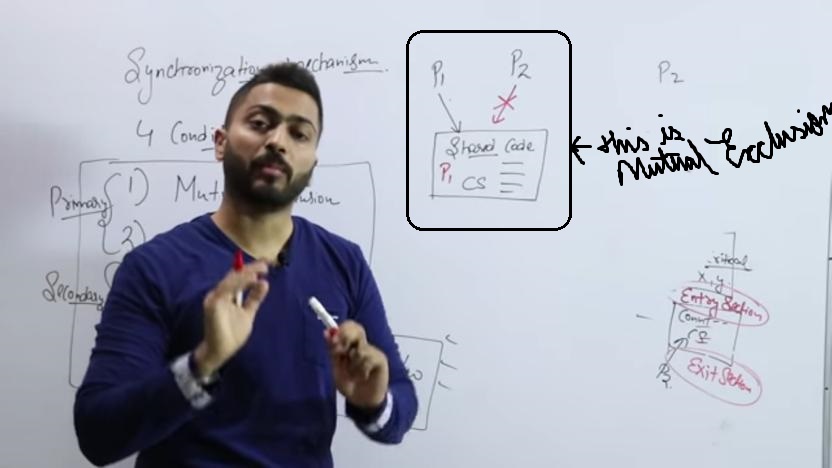 Synchronization Mechanism.
4 Condi
Primary
1) Mutual Exclusion
2)
Secondary
P1
P2
Shared Code
P1
CS
← this is
Mutual Exclusion
P2
critical
x,y
Entry Section
Count--
CS
P1
Exit Section